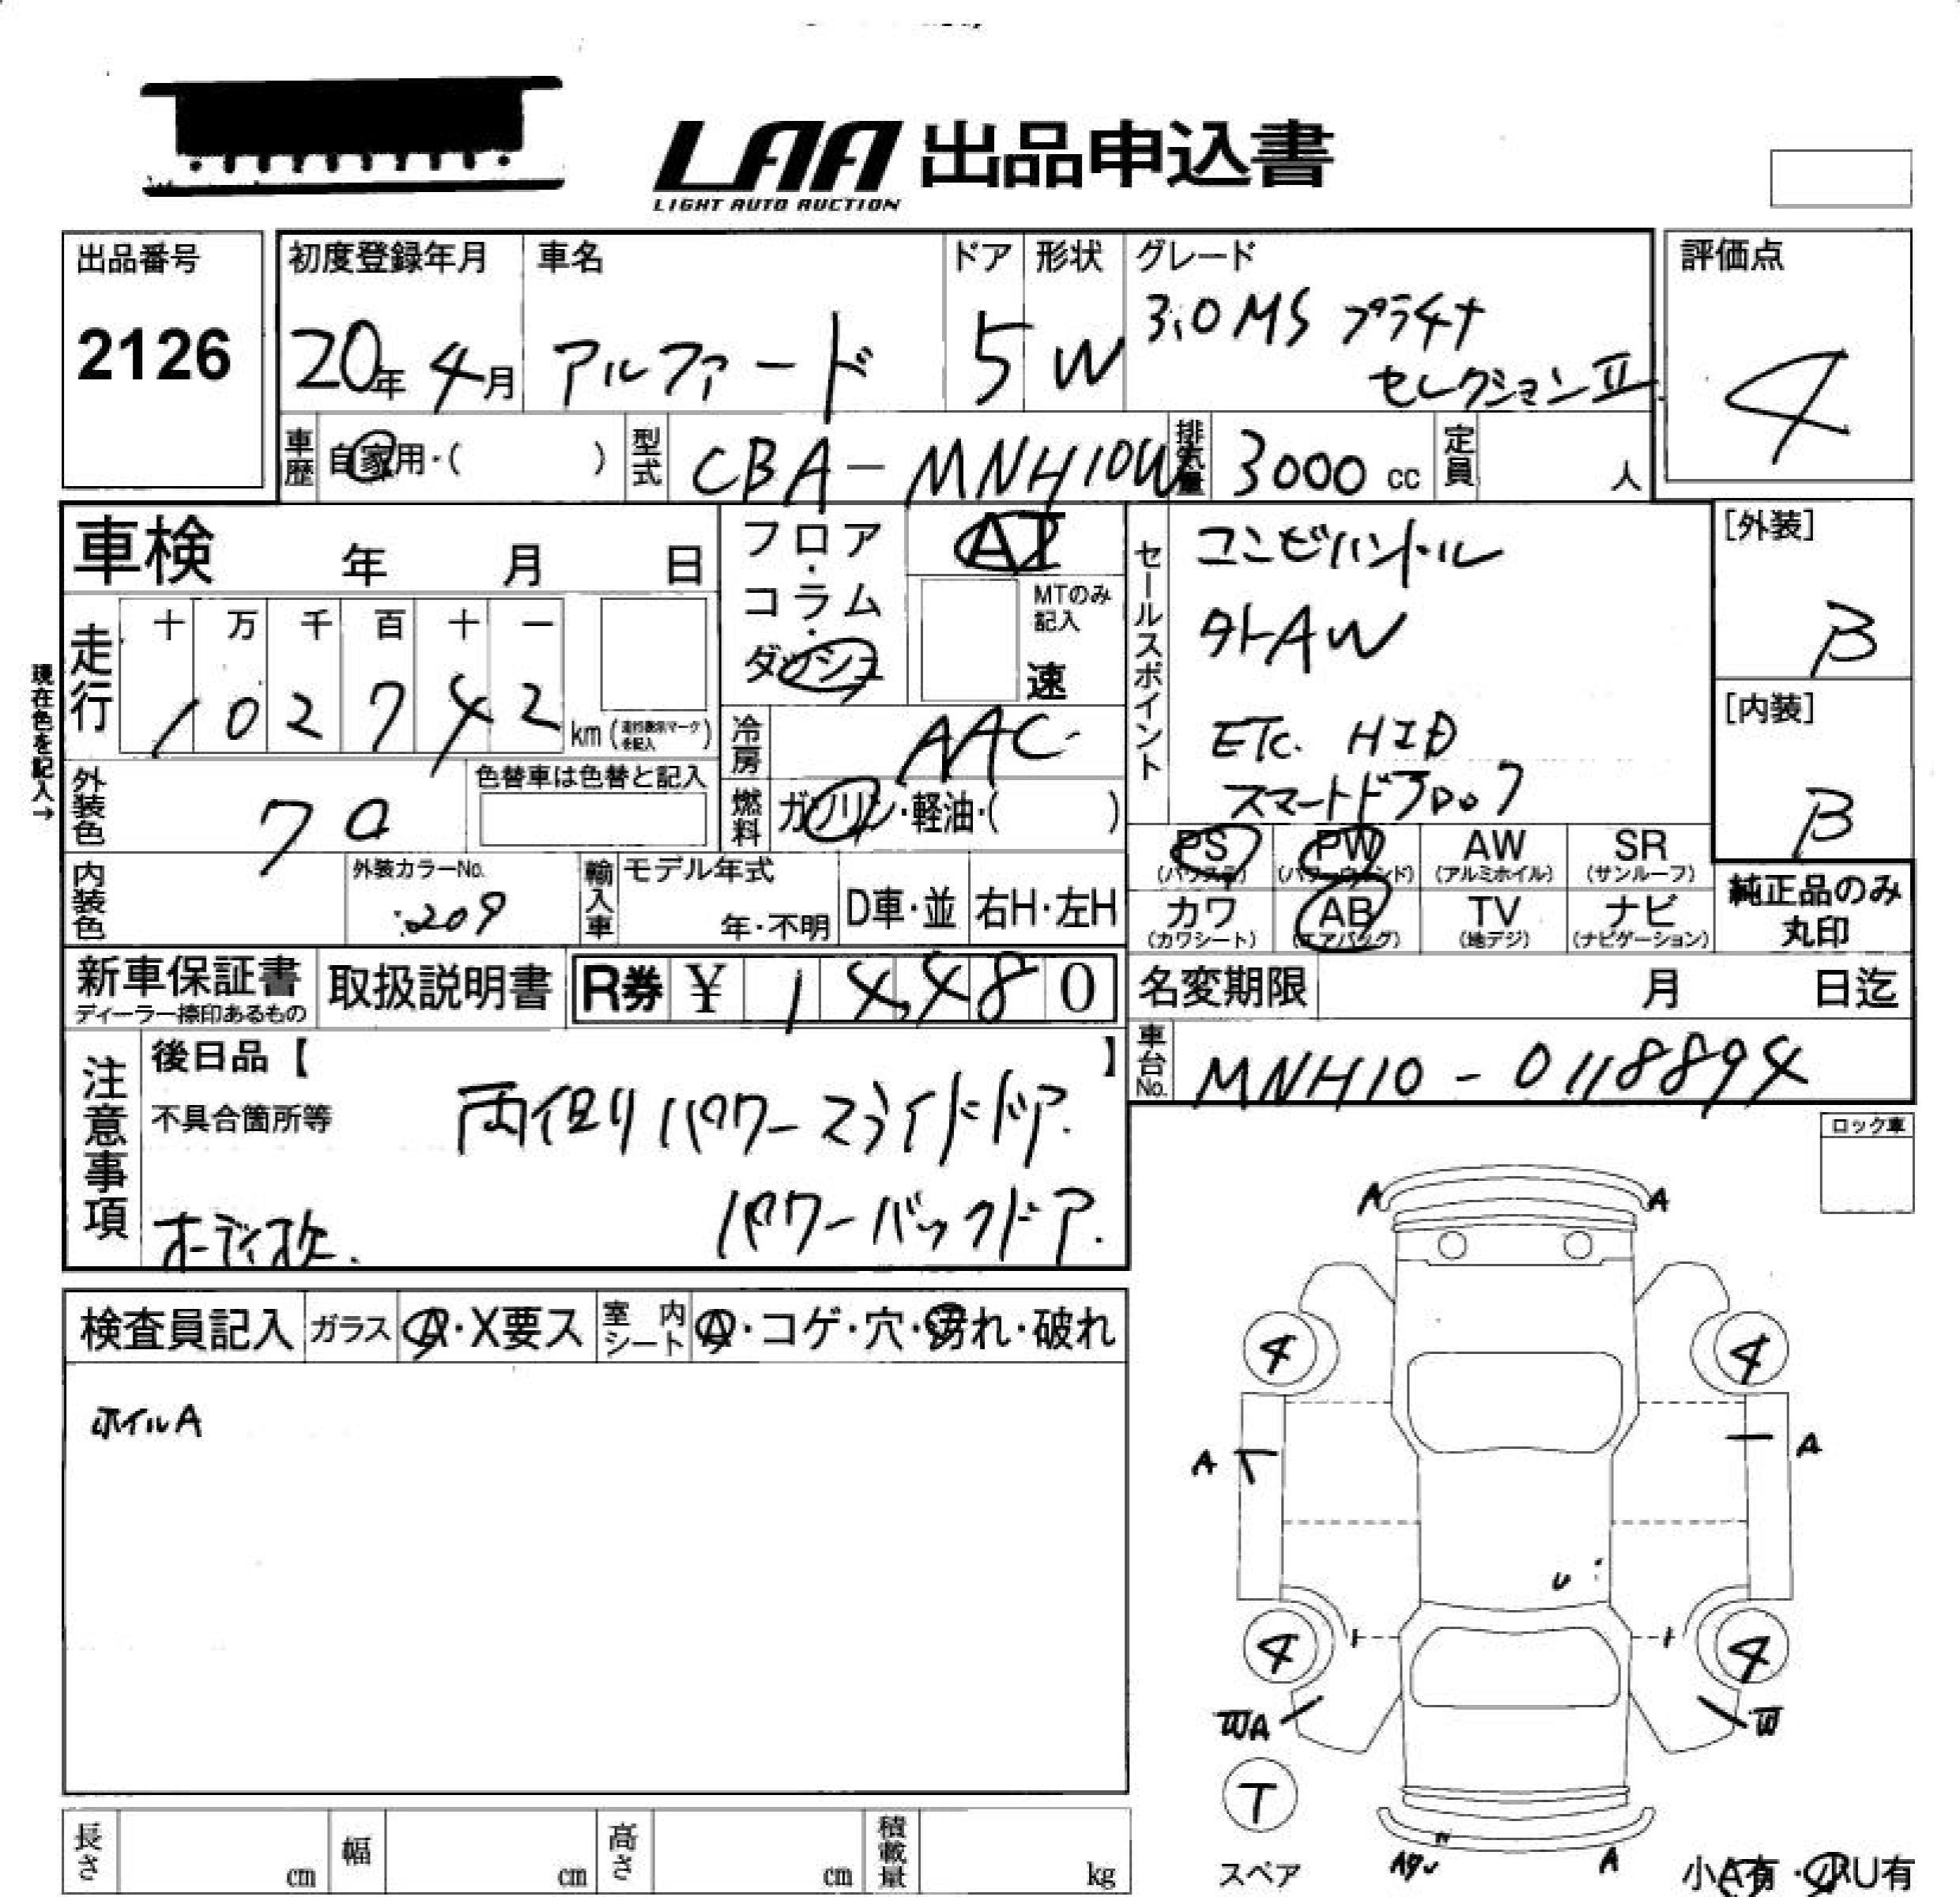 LAA 出品申込書
LIGHT AUTO AUCTION
出品番号
2126
初度登録年月
20年 4月
車名
アルファード
ドア
5
形状
W
グレード
3.0 MS プラチナ
セレクションⅡ
評価点
4
車歴 自家用・( )
型式 CBA-MNH10W
排気量 3000 cc
定員 人
車検 年 月 日
フロア・コラム・ダッシュ
AT
MTのみ記入
速
セールスポイント
コンビハンドル
外AW
ETC. HID
スマートドア
[外装]
B
[内装]
B
現在色を記入→
走行
十 万 千 百 十 一
1 0 2 7 4 2 km
冷房 AAC
燃料 ガソリン・軽油・( )
外装色
色替車は色替と記入
内装色
外装カラーNo.
209
輸入車
モデル年式
年・不明
D車・並
右H・左H
PS (パワステ)
PW (パワーウィンド)
AW (アルミホイル)
SR (サンルーフ)
カワ (カワシート)
AB (エアバッグ)
TV (地デジ)
ナビ (ナビゲーション)
純正品のみ
丸印
新車保証書
ディーラー捺印あるもの
取扱説明書
R券 ¥ 1 4,4 8 0
名変期限 月 日迄
車台No. MNH10-0118894
注意事項
後日品【 】
不具合箇所等
両側パワースライドドア.
パワーバックドア.
ロック車
検査員記入
ガラス A・X要ス
室内シート A・コゲ・穴・汚れ・破れ
ホイルA
A A
4 4
A A
U
4 4
WA W
T
スペア
A
小A有・小U有
長さ cm
幅 cm
高さ cm
積載量 kg